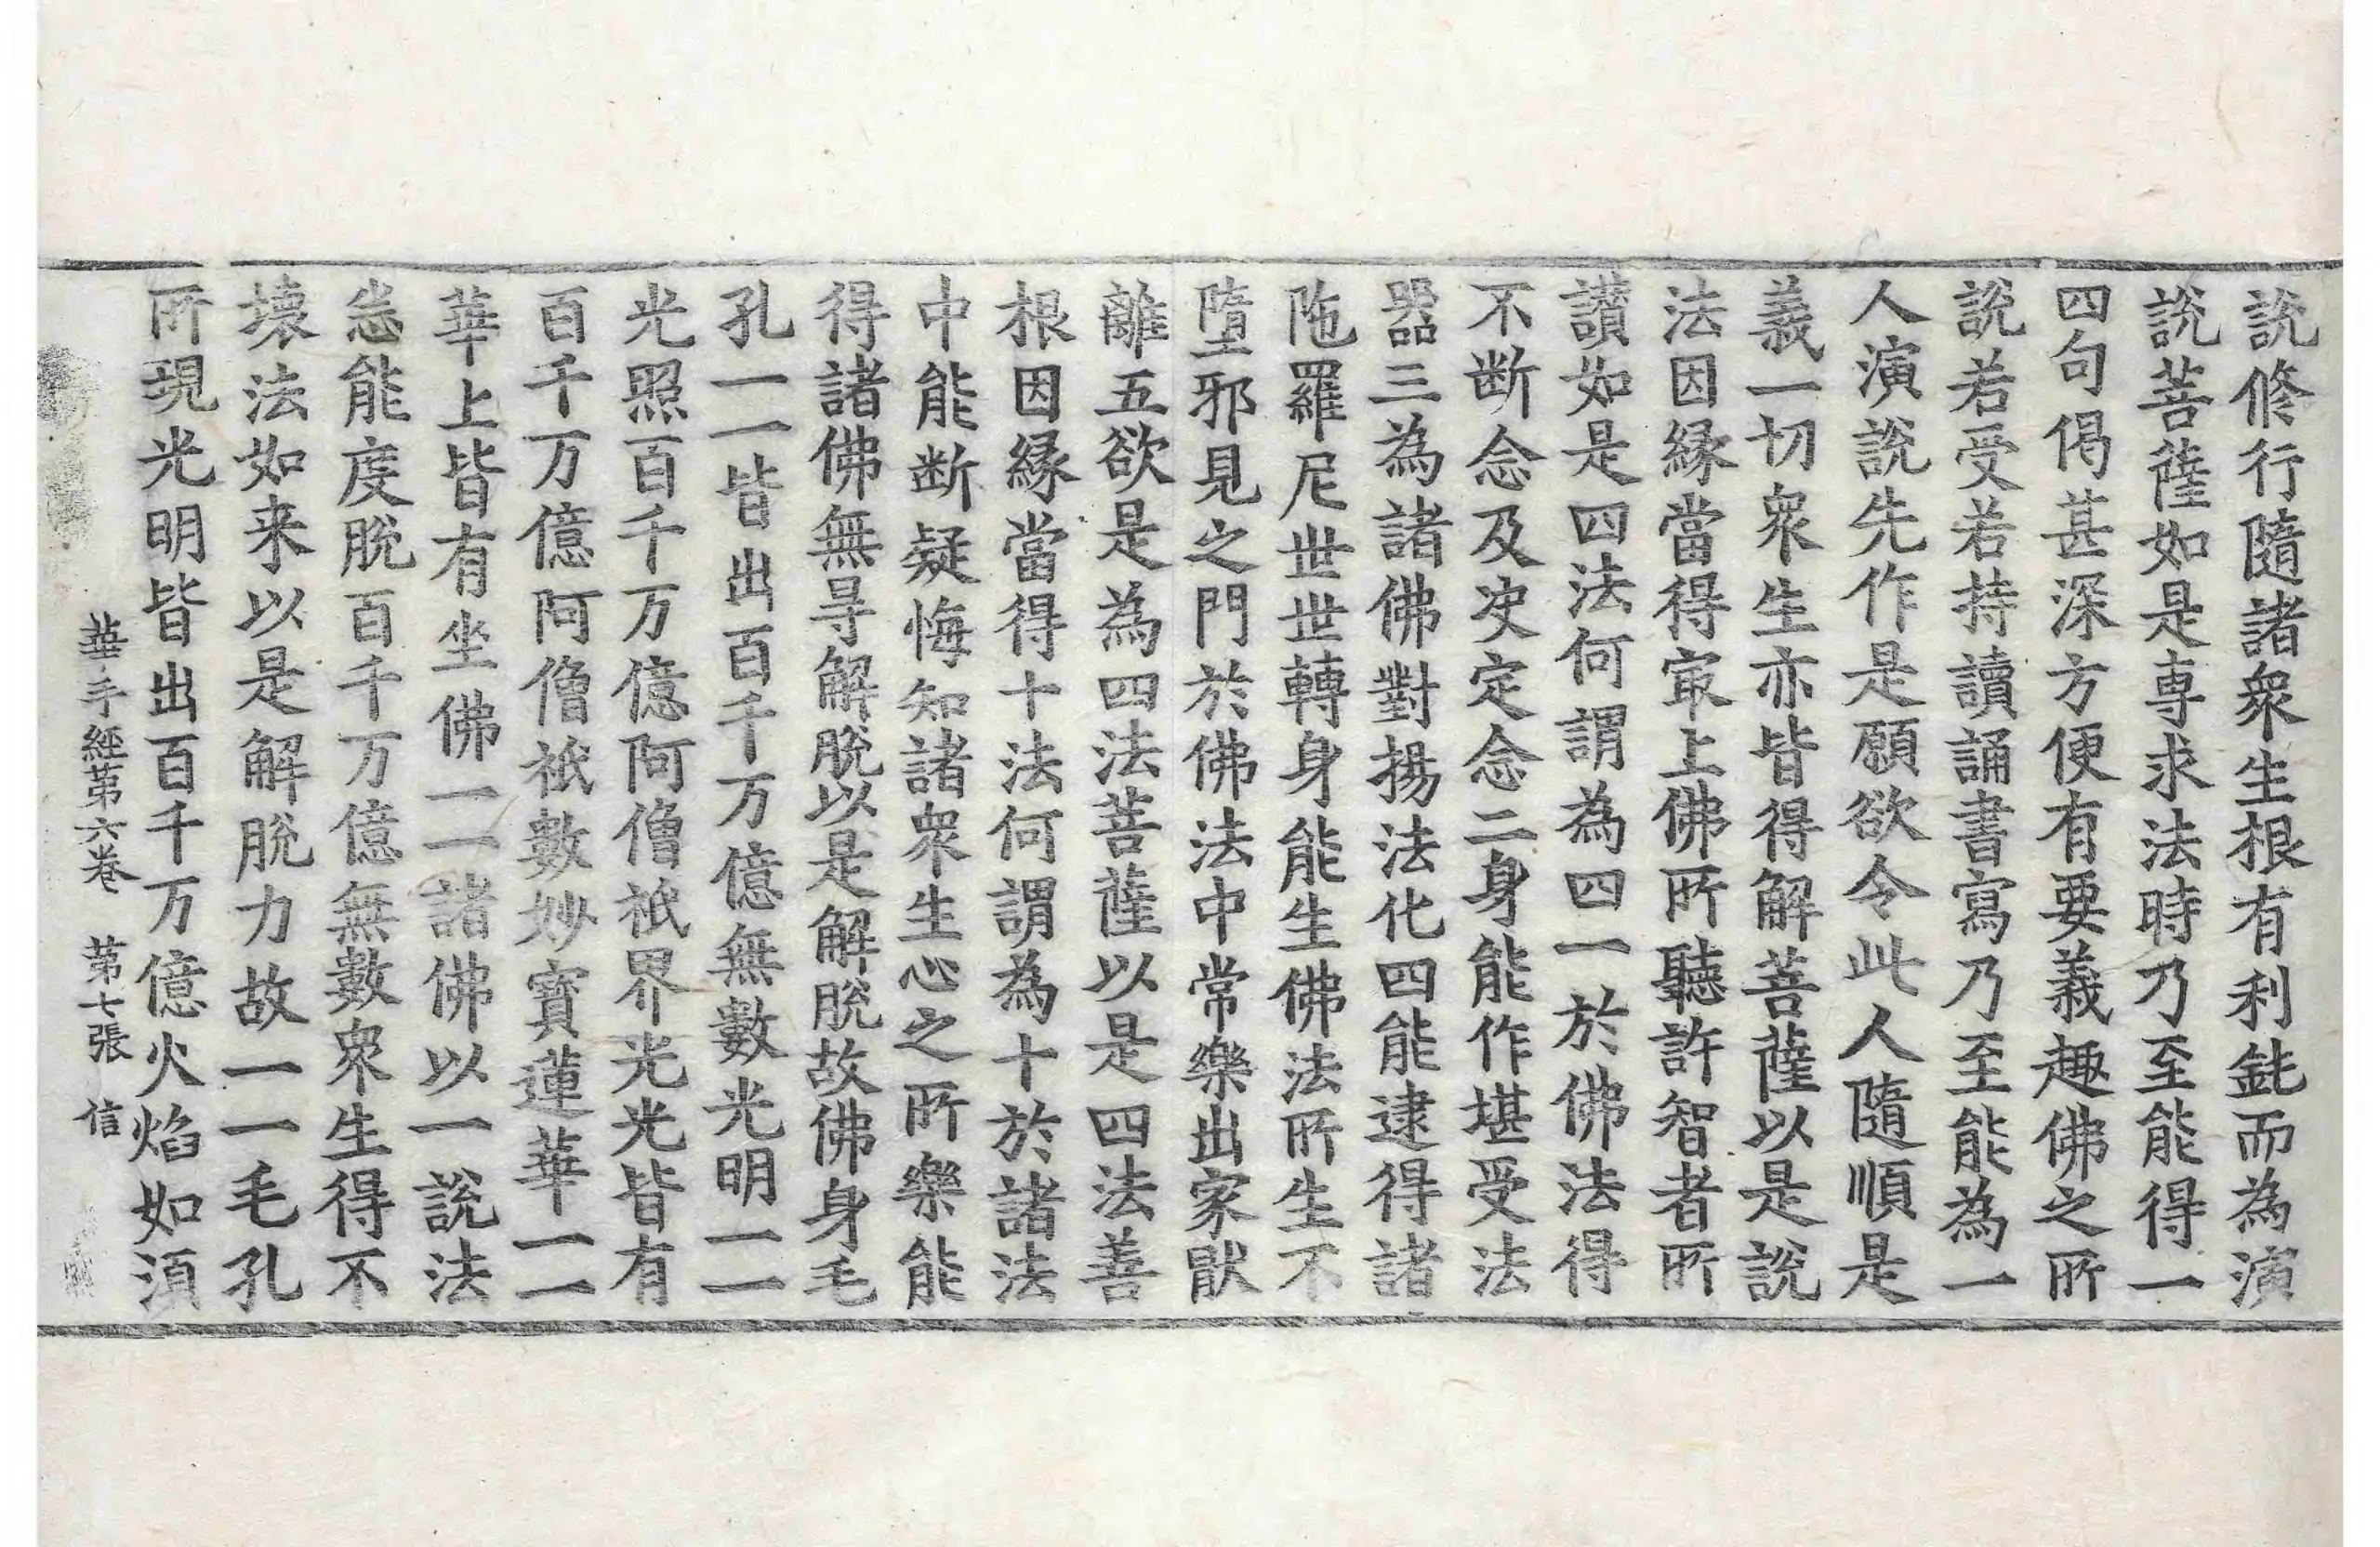 說修行隨諸衆生根有利鈍而為演
說菩薩如是専求法時乃至能得一
四句偈甚深方便有要義趣佛之所
說若受若持讀誦書寫乃至能為一
人演說先作是願欲令此人隨順是
義一切衆生亦皆得解菩薩以是說
法因縁當得㝡上佛所聽許智者所
讃如是四法何謂為四一於佛法得
不断念及决定念二身能作堪受法
器三為諸佛對揚法化四能逮得諸
陁羅尼世世轉身能生佛法所生不
墮邪見之門於佛法中常樂出家猒
離五欲是為四法菩薩以是四法善
根因縁當得十法何謂為十於諸法
中能断疑悔知諸衆生心之所樂能
得諸佛無㝵解脫以是解脫故佛身毛
孔一一皆出百千万億無數光明一一
光照百千万億阿僧祇界光光皆有
百千万億阿僧祇數妙寶蓮華一一
華上皆有坐佛一一諸佛以一說法
㤀能度脫百千万億無數衆生得不
壊法如来以是解脫力故一一毛孔
所現光明皆出百千万億火焰如湏
華手經第六卷 第七張 信